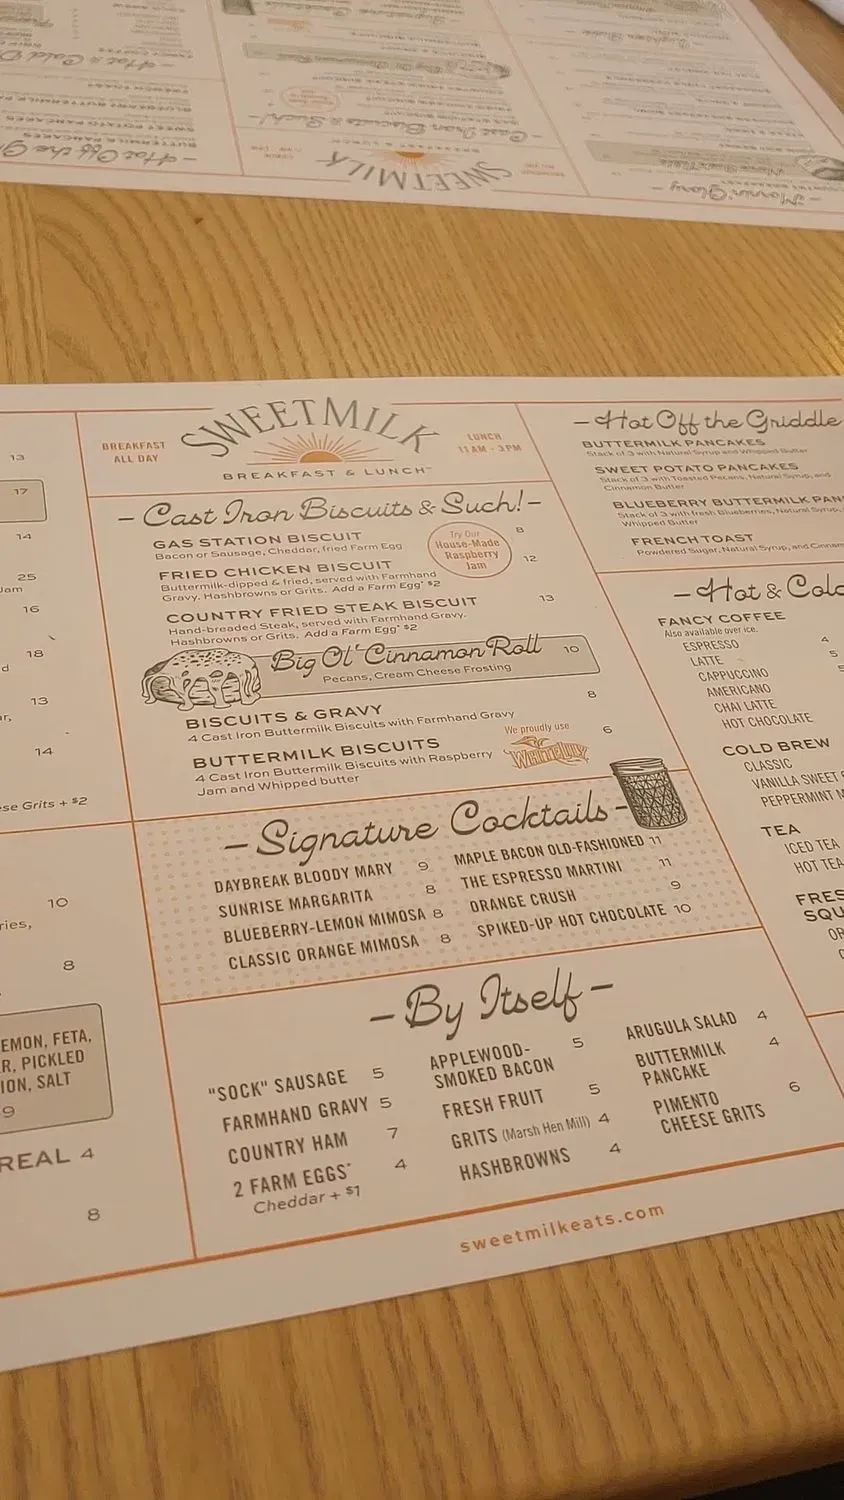 SWEETMILK
BREAKFAST & LUNCH
BREAKFAST
ALL DAY
LUNCH
11AM - 3PM
13
17
14
25
Jam
16
18
13
14
Grits + $2
10
8
EMON, FETA,
R, PICKLED
ION, SALT
9
REAL 4
8
- Cast Iron Biscuits & Such! -
GAS STATION BISCUIT 8
Bacon or Sausage, Cheddar, fried Farm Egg
Try Our
House-Made
Raspberry
Jam
FRIED CHICKEN BISCUIT 12
Buttermilk-dipped & fried, served with Farmhand
Gravy, Hashbrowns or Grits. Add a Farm Egg* $2
COUNTRY FRIED STEAK BISCUIT 13
Hand-breaded Steak, served with Farmhand Gravy,
Hashbrowns or Grits. Add a Farm Egg* $2
Big Ol' Cinnamon Roll 10
Pecans, Cream Cheese Frosting
BISCUITS & GRAVY 8
4 Cast Iron Buttermilk Biscuits with Farmhand Gravy
BUTTERMILK BISCUITS 6
4 Cast Iron Buttermilk Biscuits with Raspberry
Jam and Whipped butter
We proudly use
WHITE LILY
- Signature Cocktails -
DAYBREAK BLOODY MARY 9
SUNRISE MARGARITA 8
BLUEBERRY-LEMON MIMOSA 8
CLASSIC ORANGE MIMOSA 8
MAPLE BACON OLD-FASHIONED 11
THE ESPRESSO MARTINI 11
ORANGE CRUSH 9
SPIKED-UP HOT CHOCOLATE 10
- By Itself -
"SOCK" SAUSAGE 5
FARMHAND GRAVY 5
COUNTRY HAM 7
2 FARM EGGS* 4
Cheddar + $1
APPLEWOOD- 5
SMOKED BACON
FRESH FRUIT 5
GRITS (Marsh Hen Mill) 4
HASHBROWNS 4
ARUGULA SALAD 4
BUTTERMILK 4
PANCAKE
PIMENTO 6
CHEESE GRITS
- Hot Off the Griddle
BUTTERMILK PANCAKES
Stack of 3 with Natural Syrup and Whipped Butter
SWEET POTATO PANCAKES
Stack of 3 with Toasted Pecans, Natural Syrup, and
Cinnamon Butter
BLUEBERRY BUTTERMILK PAN
Stack of 3 with fresh Blueberries, Natural Syrup,
Whipped Butter
FRENCH TOAST
Powdered Sugar, Natural Syrup, and Cinnam
- Hot & Col
FANCY COFFEE
Also available over ice.
ESPRESSO 4
LATTE 5
CAPPUCCINO 5
AMERICANO
CHAI LATTE
HOT CHOCOLATE
COLD BREW
CLASSIC
VANILLA SWEET
PEPPERMINT M
TEA
ICED TEA
HOT TEA
FRES
SQU
OR
sweetmilkeats.com